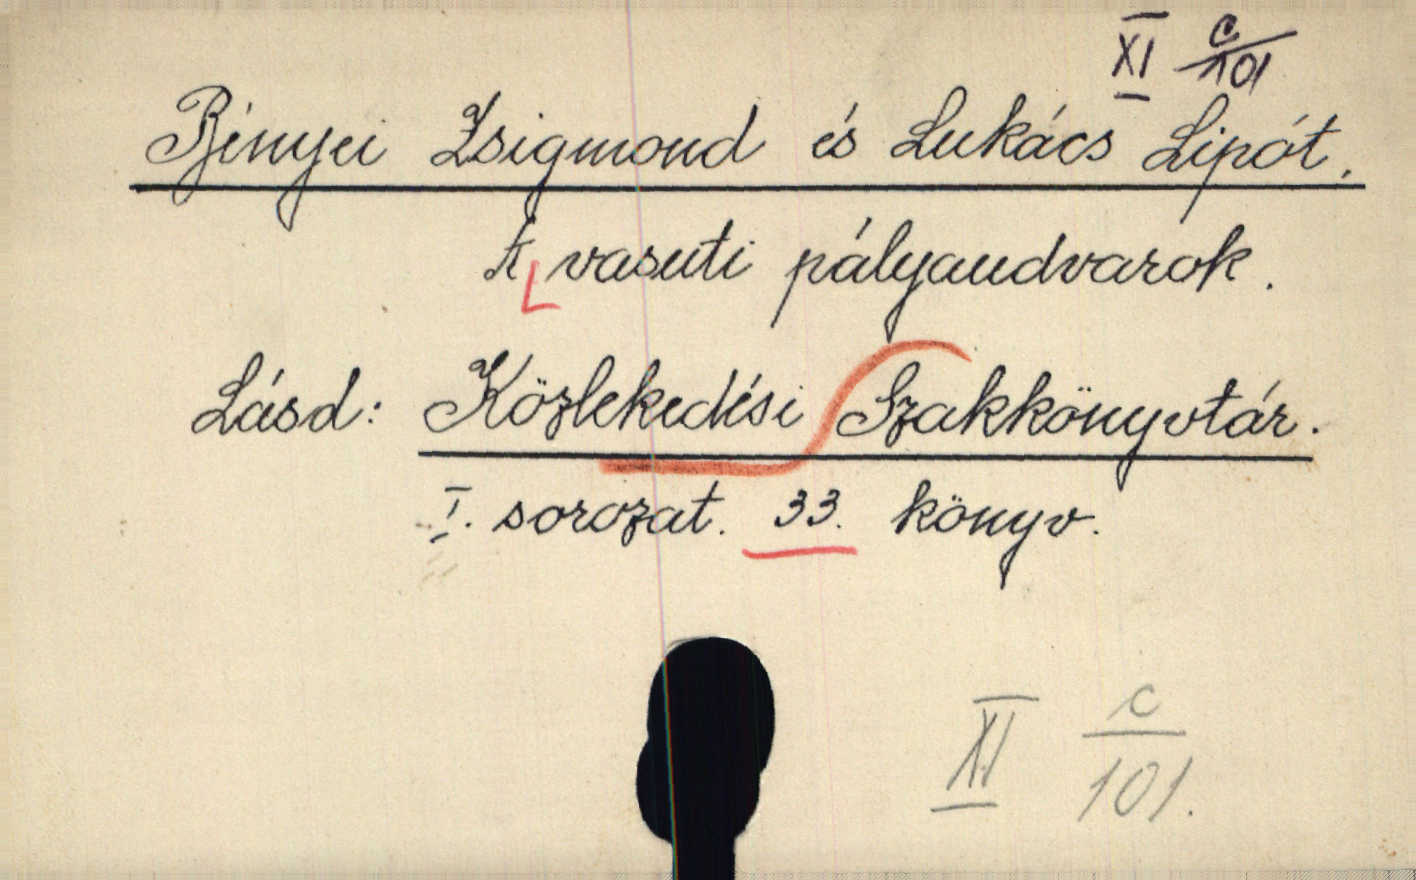 XI c/101
Bényei Zsigmond és Lukács Lipót.
A vasuti pályaudvarok.
Lásd: Közlekedési Szakkönyvtár.
I. sorozat. 33. könyv.
XI c/101.